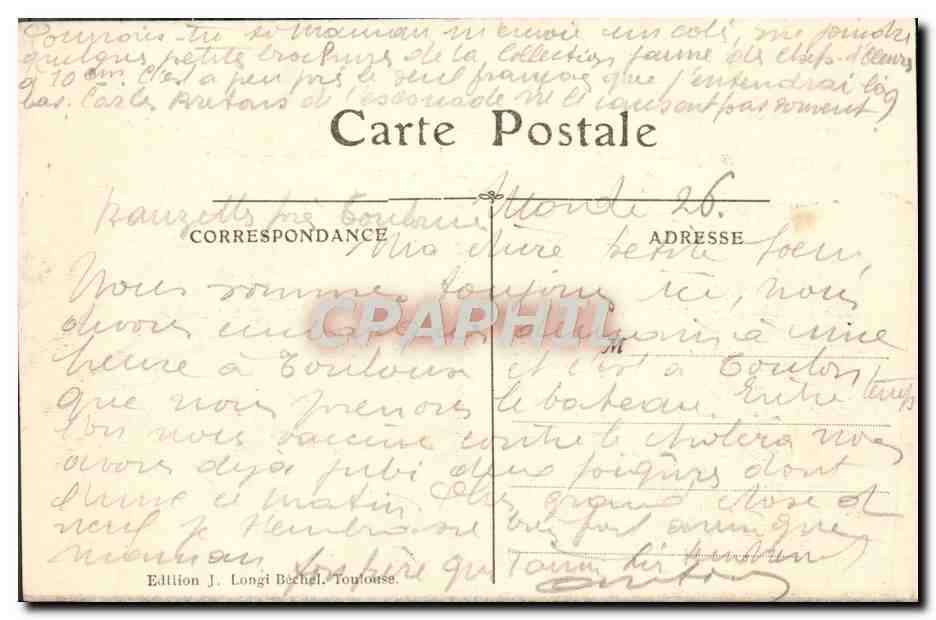 Pourrais-tu si maman m'envoie un colis, me joindre
quelques petites brochures de la Collection jaune des chefs-d'œuvre
à 10 cm. C'est à peu près le seul français que j'entendrai là
bas. Car les Bretons de l'escouade ne le causent pas souvent
Carte Postale
près Toulouse Mardi 26.
CORRESPONDANCE
ADRESSE
Ma chère petite soeur,
Nous sommes toujours ici, nous
CPARHIL
avons demain à une
M
heure à Toulouse et c'est à Toulon
que nous prenons le bateau. Entre temps
l'on nous vaccine contre le choléra nous
avons déjà subi deux piqûres dont
l'une ce matin. Pas grand chose de
neuf je t'embrasse bien fort ainsi que
maman
ton frère qui t'aime bien tendrement
Edition J. Longi Béchel. Toulouse.